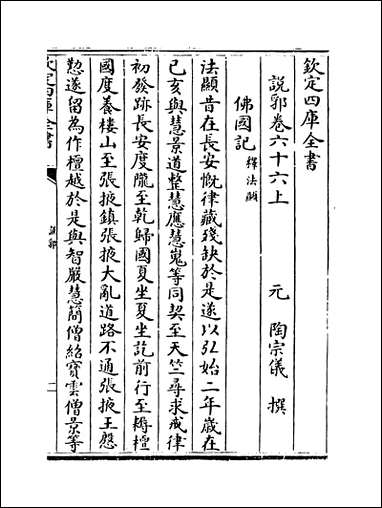 欽定四庫全書
說郛卷六十六上
元 陶宗儀 撰
佛國記 釋法顯
法顯昔在長安慨律藏殘缺於是遂以弘始二年歲在
已亥與慧景道整慧應慧嵬等同契至天竺尋求戒律
初發跡長安度隴至乾歸國夏坐夏坐訖前行至耨檀
國度養樓山至張掖鎮張掖大亂道路不通張掖王慇
懃遂留為作檀越於是與智嚴慧簡僧紹寶雲僧景等
說郛
二